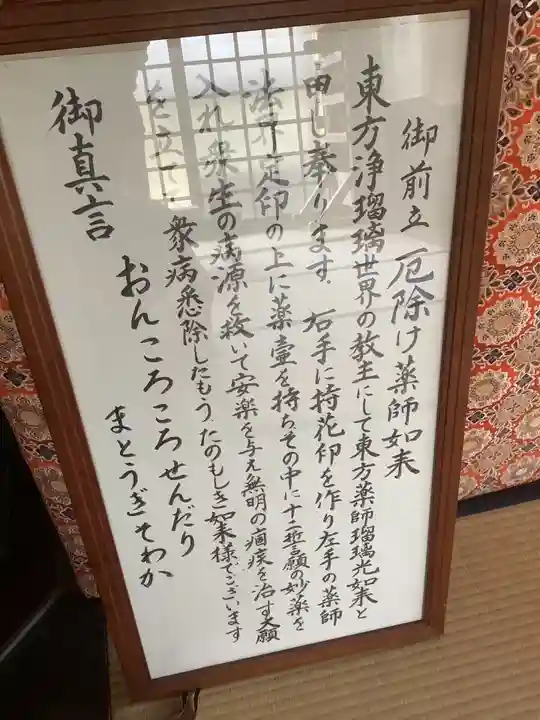 御前立 厄除け薬師如来
東方浄瑠璃世界の教主にして東方薬師瑠璃光如来と
申し奉ります。右手に持花印を作り左手の薬師
法界定印の上に薬壷を持ちその中に十二誓願の妙薬を
入れ衆生の病源を救いて安楽を与え無明の痼疾を治す大願
を立て、衆病悉除したもうたのもしき如来様でございます
御真言
おんころころせんだり
まとうぎそわか